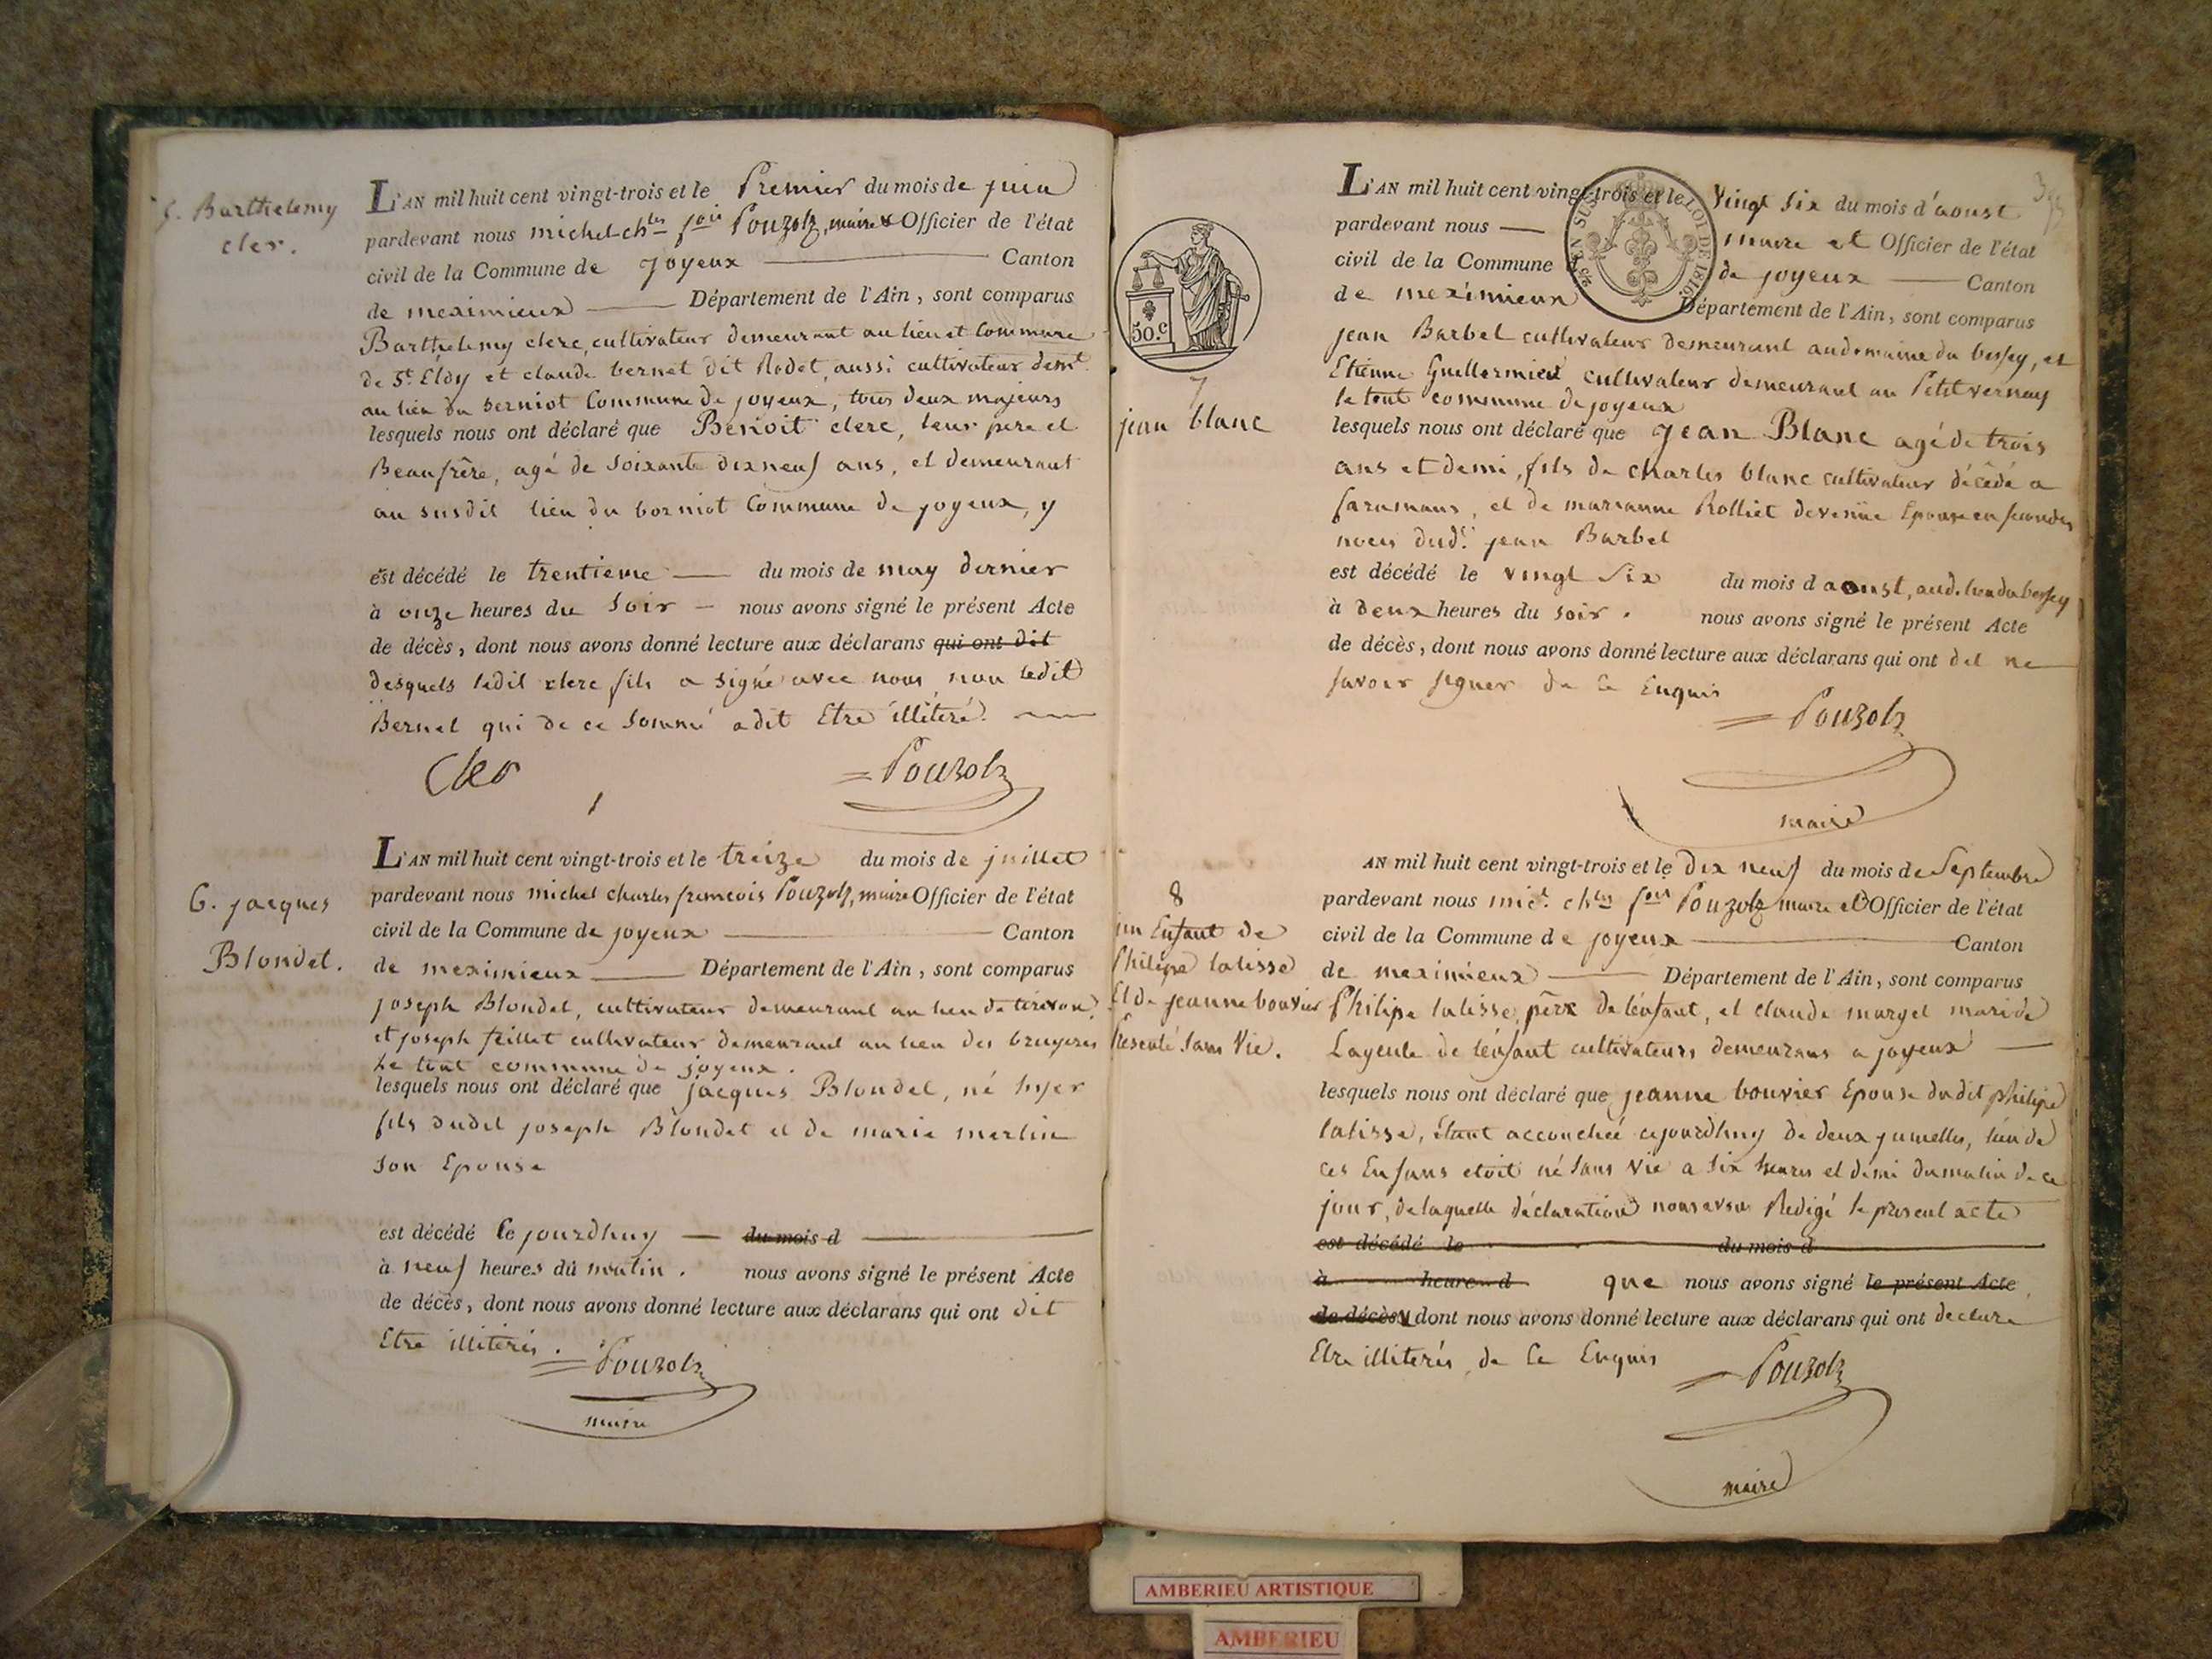 5. Barthelemy
cler.
L'AN mil huit cent vingt-trois et le Premier du mois de juin
pardevant nous michel chles fois Pouzolz, maire & Officier de l'état
civil de la Commune de joyeux Canton
de meximieux Département de l'Ain, sont comparus
Barthelemy clerc, cultivateur demeurant au lieu et Commune
de St. Eloy et claude bernet dit Rodet, aussi cultivateur demt.
au lieu du Berniot Commune de joyeux, tous deux majeurs
lesquels nous ont déclaré que Benoit clerc, leur pere et
Beaufrère, agé de soixante dix neuf ans, et demeurant
au susdit lieu du borniot Commune de joyeux, y
est décédé le trentieme du mois de may dernier
à onze heures du soir nous avons signé le présent Acte
de décès, dont nous avons donné lecture aux déclarans qui ont dit
desquels ledit clerc fils a signé avec nous, non ledit
Bernet qui de ce sommé a dit Etre illiteré.
Cler Pouzolz
6. jacques
Blondet.
L'AN mil huit cent vingt-trois et le treize du mois de juillet
pardevant nous michel charles francois Pouzolz, maire Officier de l'état
civil de la Commune de joyeux Canton
de meximieux Département de l'Ain, sont comparus
joseph Blondet, cultivateur demeurant au lieu de
et joseph feillet cultivateur demeurant au lieu des bruyeres
Le tout commune de joyeux.
lesquels nous ont déclaré que jacques Blondet, né hyer
fils dudit joseph Blondet et de marie merlin
son Epouse
est décédé Ce jourdhuy du mois d
à neuf heures du matin. nous avons signé le présent Acte
de décès, dont nous avons donné lecture aux déclarans qui ont dit
Etre illiterés. Pouzolz
maire
50.c
7
jean blanc
EN SUS LOI DE 1816.
L'AN mil huit cent vingt-trois et le vingt six du mois d'aoust
pardevant nous maire et Officier de l'état
civil de la Commune de joyeux Canton
de meximieux Département de l'Ain, sont comparus
jean Barbet cultivateur demeurant au domaine du bessey, et
Etienne Guillermier cultivateur demeurant au Petit vernay
le tout commune de joyeux
lesquels nous ont déclaré que Jean Blanc agé de trois
ans et demi, fils de charles blanc cultivateur décédé a
faramans, et de marianne Rolliet devenüe Epouse en secondes
noces dudt. jean Barbet
est décédé le vingt six du mois d aoust, aud. lieu du bessey
à deux heures du soir. nous avons signé le présent Acte
de décès, dont nous avons donné lecture aux déclarans qui ont dit ne
savoir signer de ce Enquis
Pouzolz
maire
8
un Enfant de
Philipe latisse
Et de jeanne bouvier
Presenté sans Vie.
AN mil huit cent vingt-trois et le dix neuf du mois de Septembre
pardevant nous micl. chles fois Pouzolz maire et Officier de l'état
civil de la Commune de joyeux Canton
de meximieux Département de l'Ain, sont comparus
Philipe latisse, père de l'enfant, et claude murget mari de
Layeule de lenfant cultivateurs demeurans a joyeux
lesquels nous ont déclaré que jeanne bouvier Epouse dudit philipe
latisse, étant accouchée cejourdhuy de deux jumelles, lun de
ces Enfans etoit né sans vie a six heures et demi du matin de ce
jour, de laquelle déclaration nous avons Redigé le present acte
est décédé le du mois d
à heure d que nous avons signé le présent Acte
de décès, dont nous avons donné lecture aux déclarans qui ont declaré
Etre illiterés, de ce Enquis Pouzolz
maire
AMBERIEU ARTISTIQUE
AMBERIEU